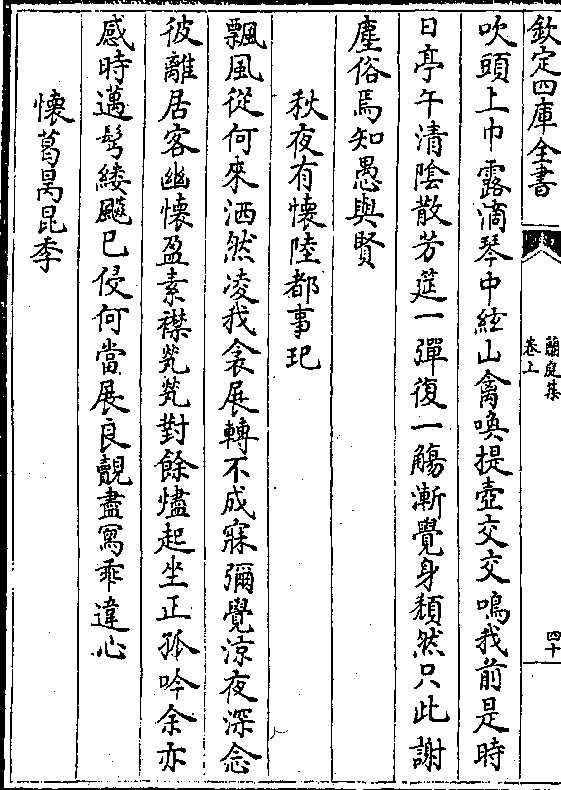 欽定四庫全書
蘭庭集
卷上
四十
吹頭上巾露滴琴中絃山禽喚提壺交交鳴我前是時
日亭午清陰散芳筵一彈復一觴漸覺身頹然只此謝
塵俗焉知愚與賢
秋夜有懷陸都事玘
飄風從何來洒然凌我衾展轉不成寐彌覺涼夜深念
彼離居客幽懷盈素襟煢煢對餘燼起坐正孤吟余亦
感時邁髩緌颸已侵何當展良覿盡寫乖違心
懷葛昺昆季